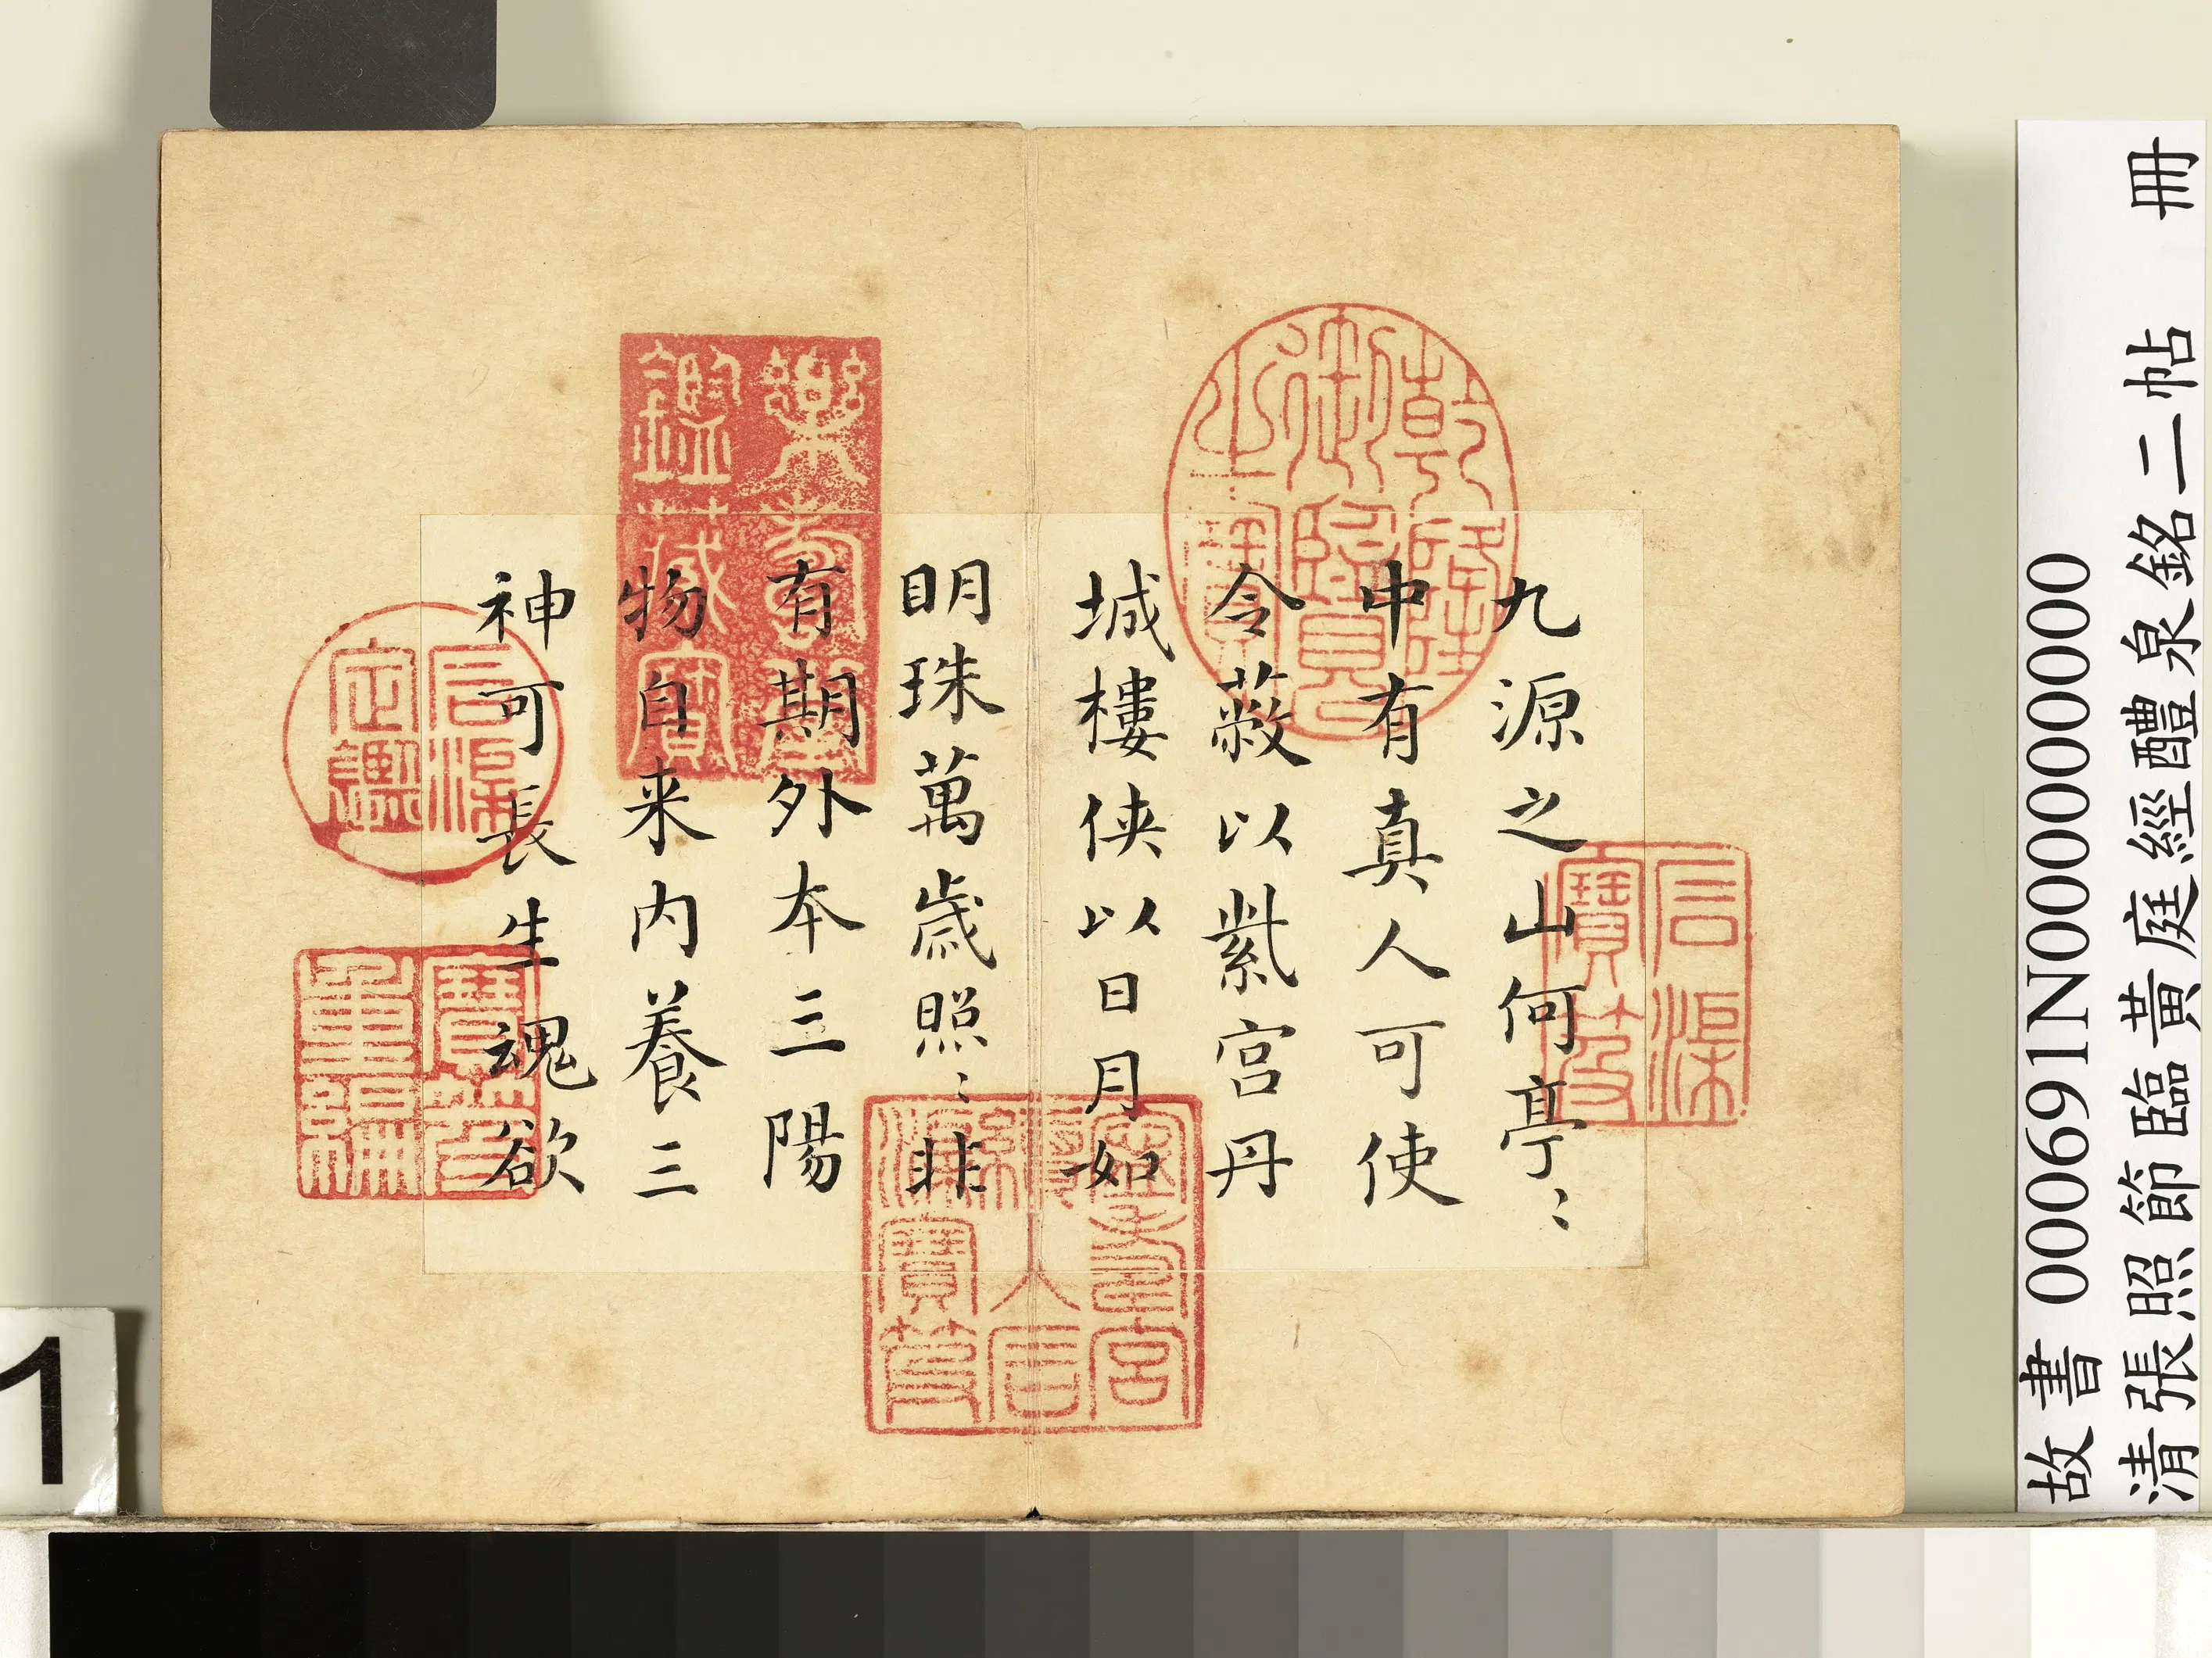 故書 000691N000000000
清張照節臨黃庭經醴泉銘二帖 冊
九源之山何亭〻
中有真人可使
令蔽以紫宮丹
城樓侠以日月如
明珠萬歲照〻非
有期外本三陽
物自来內養三
神可長生魂欲
乾隆御覽之寶
石渠寶笈
養心殿鑑藏寶
樂壽堂鑑藏寶
石渠定鑑
寶笈重編
寧壽宮續入石渠寶笈
1